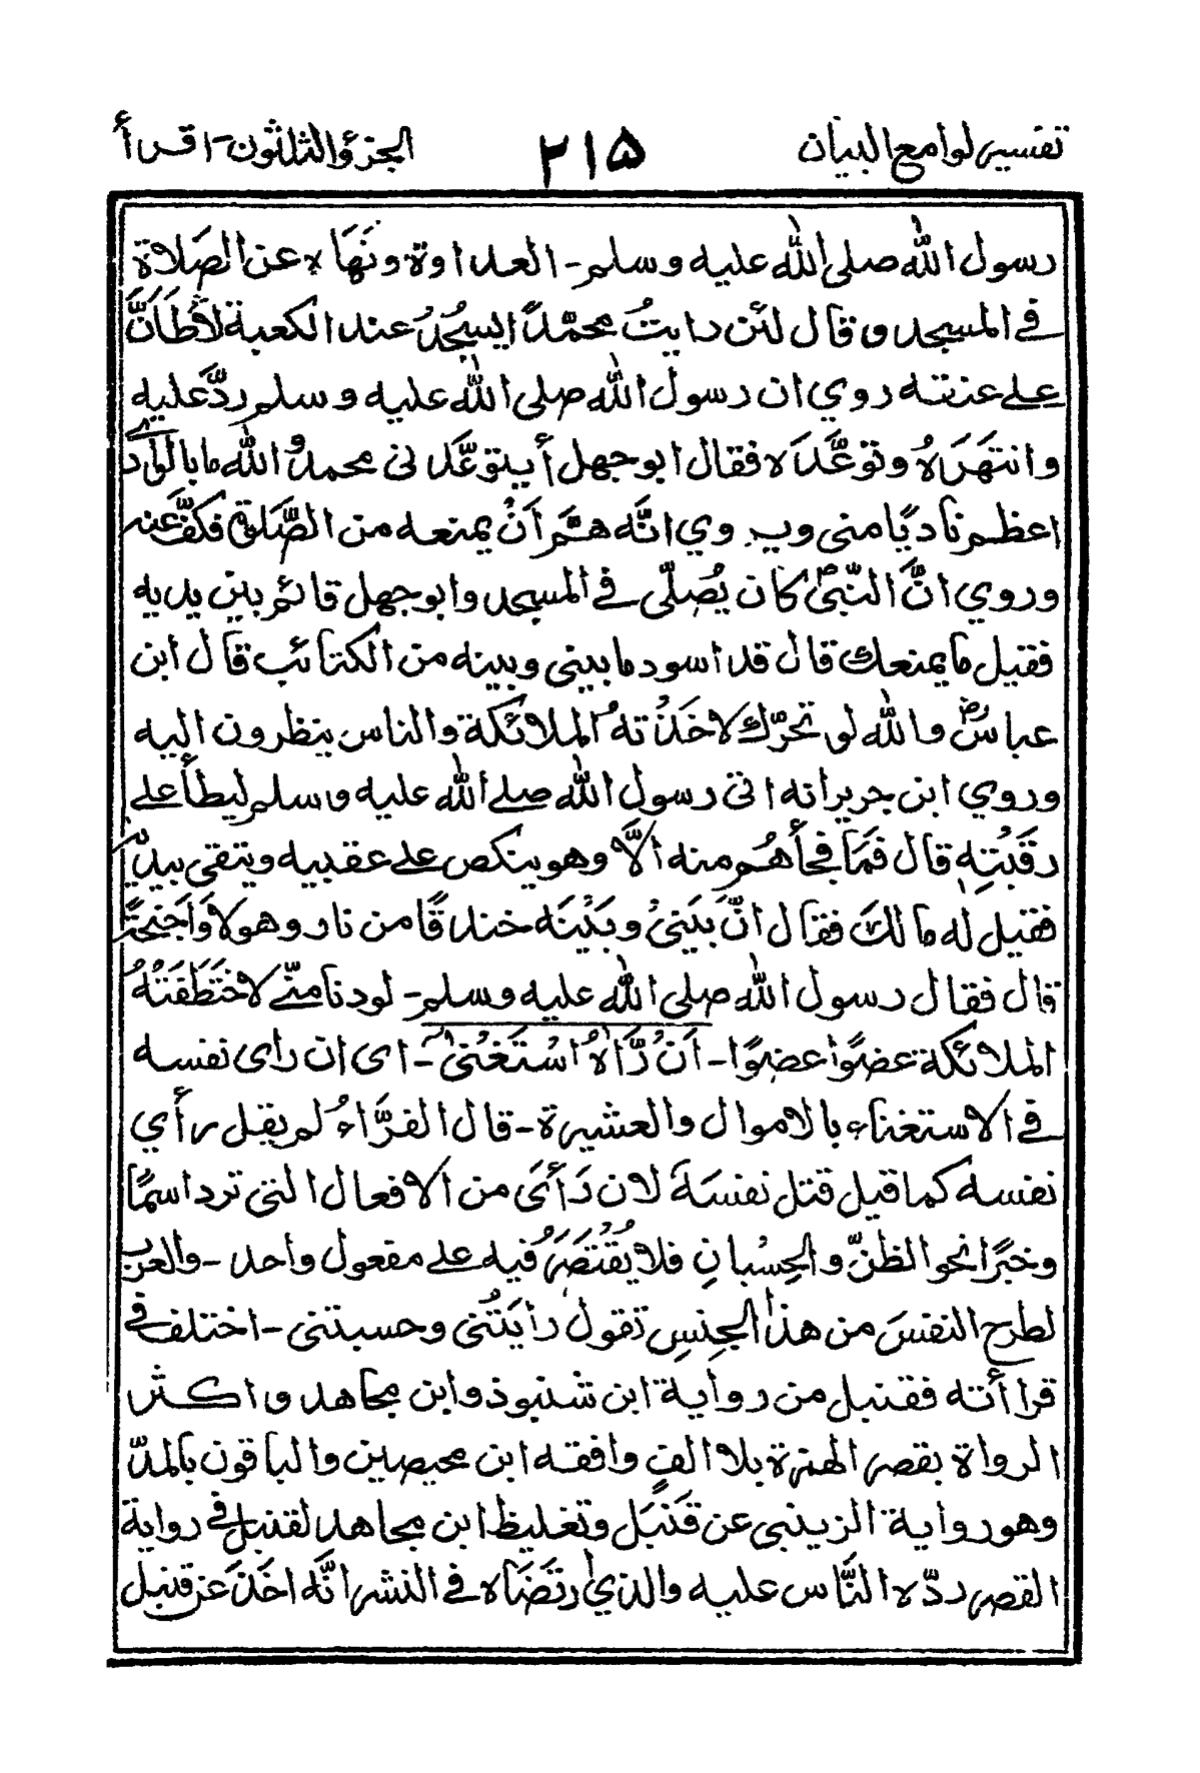 تفسير لوامع البيان ٢١٥ الجزؤ الثلثون - اقرأ
رسول الله صلى الله عليه وسلم - العداوة ونَهَاه عن الصَلاة
في المسجد وقال لئن رايتُ محمّدًا يسجُدُ عند الكعبة لأطَأَنَّ
على عنقه روي ان رسول الله صلى الله عليه وسلم ردَّ عليه
وانتهَرَهُ وتوعَّدَه فقال ابوجهل أيتوعَّدنى محمدٌ والله ما بالوادى
اعظم ناديًا منى ويروي انَّه همَّ أنْ يمنعه من الصَّلوة فكفَّ عنه
وروي انَّ النّبىّ كان يُصَلّى في المسجد وابوجهل قائم بين يديه
فقيل ما يمنعك قال قد اسود ما بينى وبينه من الكتائب قال ابن
عباس والله لو تحرّك لاخَذَتهُ الملائكة والناس ينظرون اليه
وروي ابن جرير انه اتى رسول الله صلى الله عليه وسلم ليطأ على
رقَبُتِه قال فمَا فجأهُم منه الَّا وهو ينكص على عقبيه ويتقى بيديه
فقيل له ما لكَ فقال انّ بَينىْ وبَيْنَه خندقًا من نار وهولًا وَاَجنِحَةً
قال فقال رسول الله صلى الله عليه وسلم - لو دنا منّى لاختَطَفَتْهُ
الملائكة عضوًا عضوًا - اَنْ رَّاٰهُ اسْتَغْنىٰ - اى ان راى نفسه
في الاستغناء بالاموال والعشيرة - قال الفرَّاءُ لم يقل رأي
نفسه كما قيل قتل نفسَهَ لان رَأىَ من الافعال التى ترد اسمًا
وخبرًا نحو الظنّ والحِسْبانِ فلا يُقْتَصَرُ فيه على مفعول واحد - والعرب
لطرح النفسَ من هذا الجِنسِ تقول رأيتُنى وحسبتنى - اختلف في
قراأته فقنبل من رواية ابن شنبوذ وابن مجاهد واكثر
الرواة بقصر الهمزة بلا الفٍ وافقه ابن محيصين والباقون بالمدّ
وهو رواية الزينبى عن قَنْبَل وتغليظ ابن مجاهد لقنبل في رواية
القصر ردّه النَّاس عليه والذي ارتَضَاه في النشر انَّه اخَذَ عن قنبل